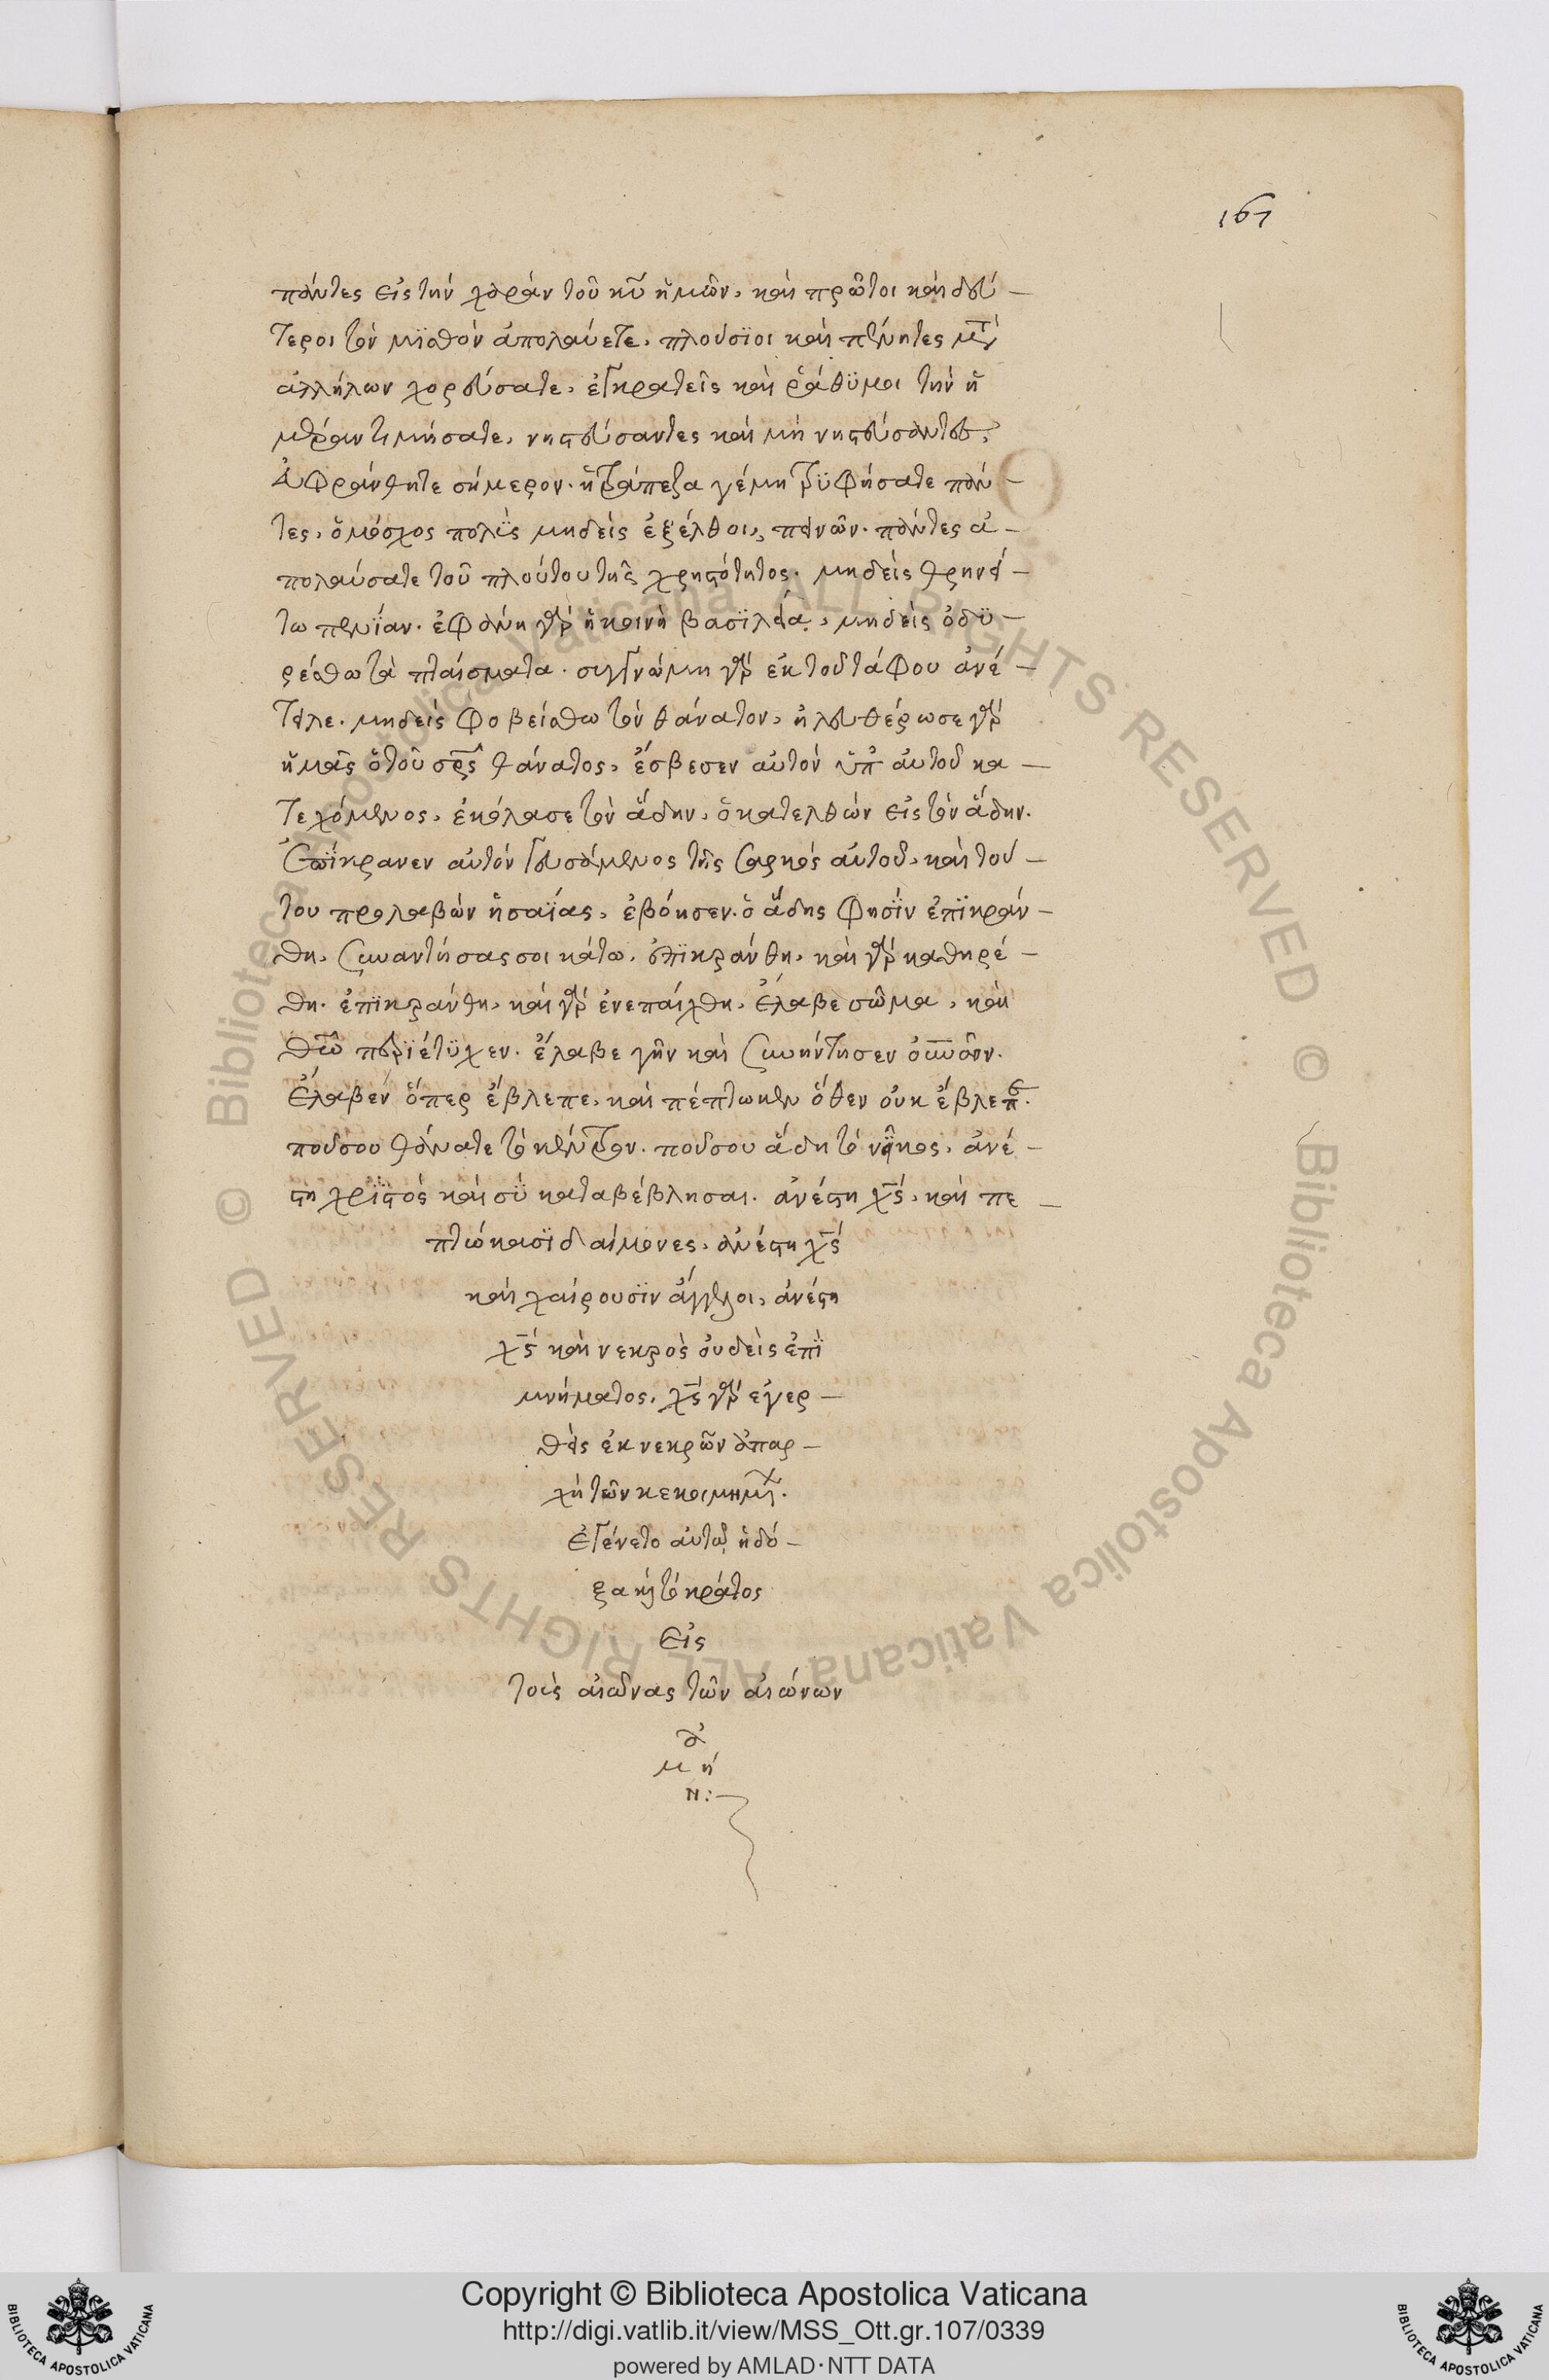 167
πάντες εἰς τὴν χαρὰν τοῦ κυ ἡμῶν, καὶ πρῶτοι καὶ δεύ –
τεροι τὸν μϊσθὸν ἀπολαύετε, πλούσϊοι καὶ πένητες μετ
ἀλλήλων χορεύσατε, ἐγκρατεῖς καὶ ῥάθϋμοι τὴν ἡ
μέραν τιμήσατε, νηστεύσαντες καὶ μὴ νηστεύσαντες,
εὐφράνθητε σήμερον. ἡ τράπεζα γέμη τρϋφήσατε πάν –
τες, ὁ μόσχος πολὶς μηδεὶς ἐξέλθοι, πεινῶν. πάντες ἀ –
πολαύσατε τοῦ πλούτου τῆς χρηστότητος. μηδεὶς θρηνεί –
τω πενϊαν. ἐφάνη γὰρ ἡ κοινὴ βασϊλεία, μηδεὶς ὀδϋ –
ρέσθω τὰ πταίσματα. συγγνώμη γὰρ ἐκ τοῦ τάφου ἀνέ –
τειλε. μηδεὶς φοβείσθω τὸν θάνατον, ἠλευθέρωσε γὰρ
ἡμᾶς ὁ τοῦ σρς θάνατος, ἔσβεσεν αὐτὸν ὑπ' αὐτοῦ κα –
τεχόμενος, ἐκόλασε τὸν ἅδην, ὁ κατελθὼν εἰς τὸν ἅδην.
Ἐπίκρανεν αὐτὸν γευσάμενος τῆς σαρκὸς αὐτοῦ, καὶ τού –
του προλαβὼν ἡσαΐας, ἐβόησεν. ὁ ἅδης φησϊν ἐπϊκράν –
θη, συναντήσας σοι κάτω. ἐπϊκράνθη, καὶ γὰρ καθηρέ –
θη. ἐπϊκράνθη, καὶ γὰρ ἐνεπαίχθη. ἔλαβε σῶμα, καὶ
θεῶ περϊέτϋχεν. ἔλαβε γῆν καὶ συνήντησεν οὐνῶν.
ἔλαβεν ὅπερ ἔβλεπε, καὶ πέπτωκεν ὅθεν οὐκ ἔβλεπε.
ποῦ σου θάνατε τὸ κέντρον. ποῦ σου ἅδη τὸ νῖκος, ἀνέ –
στη χρϊστὸς καὶ σϋ καταβέβλησαι. ἀνέστη χς, καὶ πε –
πτώκασϊ δαίμονες, ἀνέστη χς
καὶ χαίρουσϊν ἄγγελοι, ἀνέστη
χς καὶ νεκρὸς οὐδεὶς ἐπϊ
μνήματος, χς γὰρ ἐγερ –
θεὶς ἐκ νεκρῶν ἀπαρ –
χὴ τῶν κεκοιμημένων.
ἐγένετο αὐτῶ ἡ δό –
ξα κὶ τὸ κράτος
Εἰς
τοὶς αἰῶνας τῶν αἰώνων
ἀ
μή
ν:–
© Biblioteca Apostolica Vaticana ALL RIGHTS RESERVED © Biblioteca Apostolica Vaticana ALL RIGHTS RESERVED
Copyright © Biblioteca Apostolica Vaticana
http://digi.vatlib.it/view/MSS_Ott.gr.107/0339
powered by AMLAD·NTT DATA
BIBLIOTECA APOSTOLICA VATICANA
BIBLIOTECA APOSTOLICA VATICANA